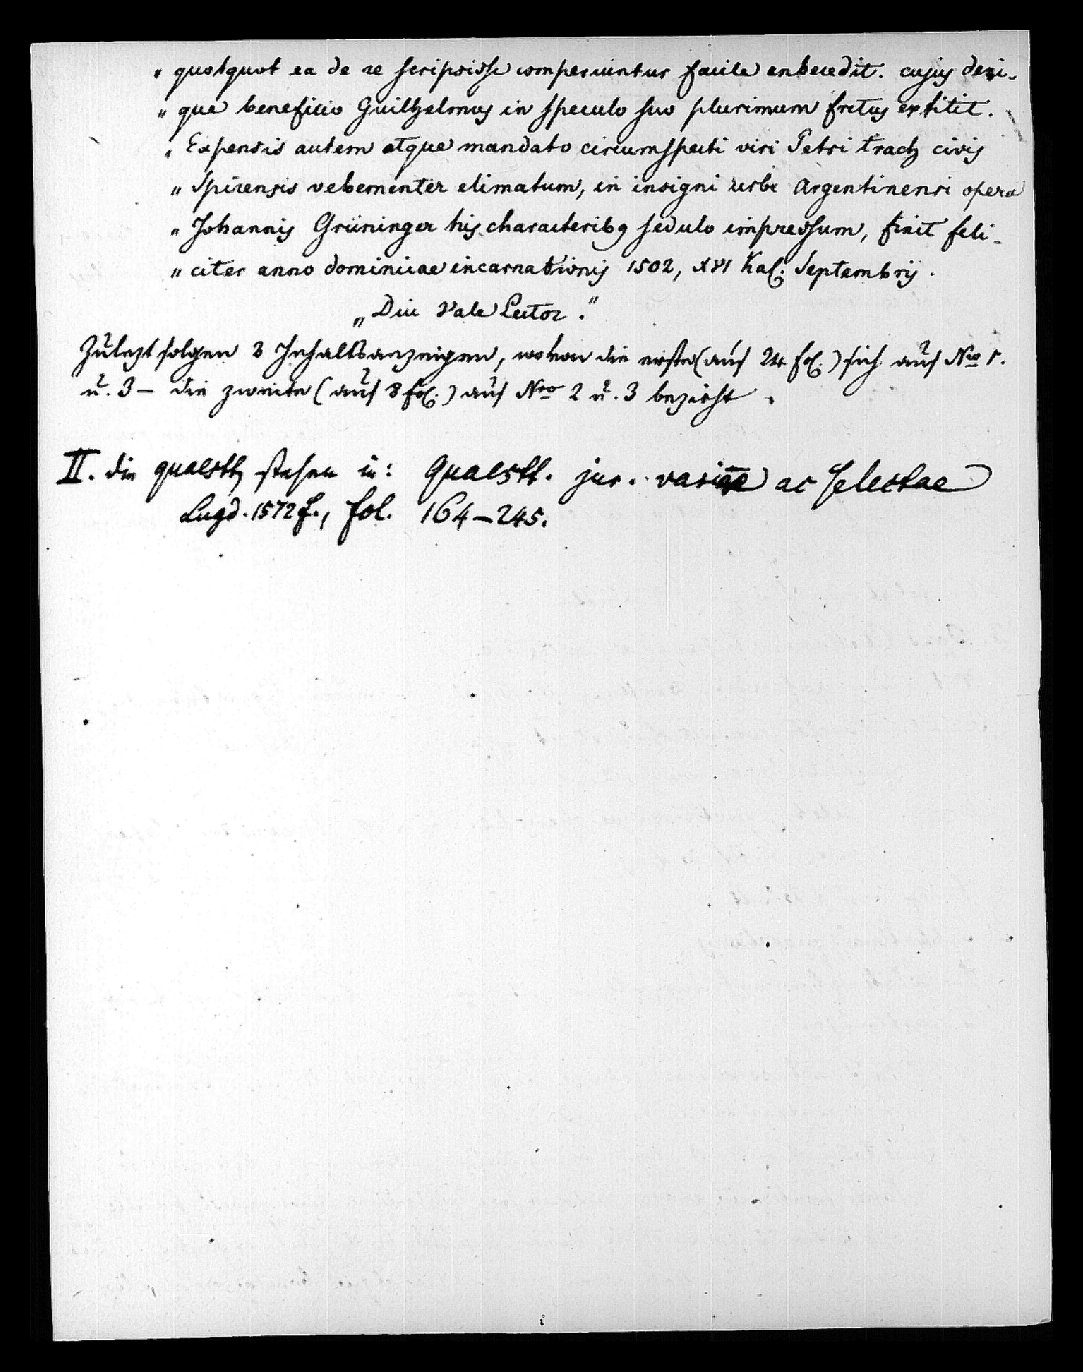 " quotquot ea de re scripsisse comperiuntur facile antecedit. cujus deni-
" que beneficio Guilhelmus in speculo suo plurimum fretus extitit.
" Expensis autem atque mandato circumspecti viri Petri Trach civis
" Spirensis vehementer elimatum, in insigni urbe Argentinensi opera
" Johannis Grüninger his characteribꝯ sedulo impressum, finit feli-
" citer anno dominicae incarnationis 1502, XVI Kal. Septembris.
„Diu Vale Lector."
Zulezt folgen 2 Inhaltsanzeigen, wovon die erste (auf 24 fol.) sich auf Nro 1.
u. 3 – die zweite (auf 8 fol.) auf Nro 2 u. 3 bezieht.
II. die quaestt stehen in: Quaestt. jur. variae ac selectae
Lugd. 1572 f., fol. 164–245.